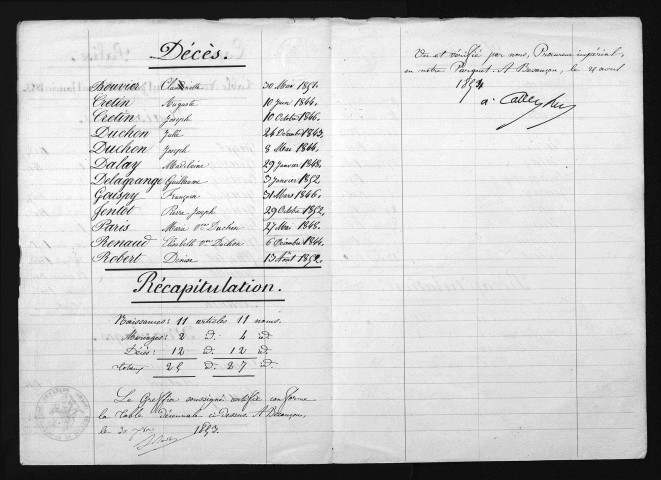 Décès.
Bouvier Claudinette 30 Mai 1851.
Cretin Auguste 10 Juin 1844.
Cretin Joseph 10 Octobre 1846.
Duchon Julie 24 Décembre 1843.
Duchon Joseph 8 Mai 1844.
Dalay Madeleine 29 Janvier 1848.
Delagrange Guillaume 3 Janvier 1852
Gauspy François 31 Mars 1846.
Jentot Pierre Joseph 29 Octobre 1852.
Paris Marie Vve Duchon 27 Mai 1848.
Renaud Elisabeth Vve Duchon 6 Décembre 1844.
Robert Denise 13 Août 1852.
Récapitulation.
Naissances: 11 articles 11 noms.
Mariages: 2 d. 4 d.
Décès: 12 d. 12 d.
Totaux 25 d. 27 d.
Le Greffier soussigné certifie conforme
la table décennale ci-dessus. A Besançon,
le 30 1853.
Vu et vérifié par nous, Procureur impérial,
en notre Parquet. A Besançon, le 28 avril
1854